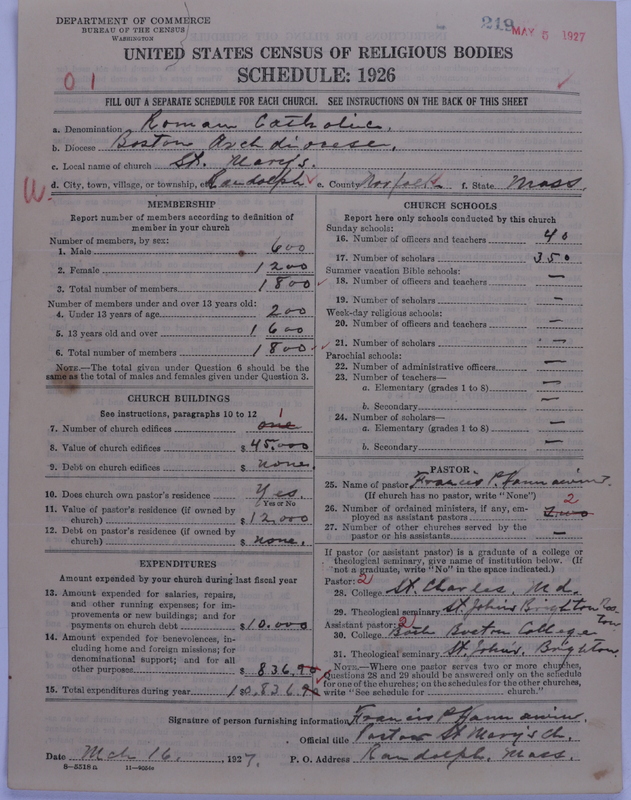 DEPARTMENT OF COMMERCE
BUREAU OF THE CENSUS
WASHINGTON
219 MAY 5 1927
UNITED STATES CENSUS OF RELIGIOUS BODIES
SCHEDULE: 1926
0 1
FILL OUT A SEPARATE SCHEDULE FOR EACH CHURCH. SEE INSTRUCTIONS ON THE BACK OF THIS SHEET
a. Denomination Roman Catholic.
b. Diocese Boston Archdiocese,
c. Local name of church St. Mary's.
W.
d. City, town, village, or township, etc. Randolph e. County Norfolk f. State Mass.
MEMBERSHIP
Report number of members according to definition of member in your church
Number of members, by sex:
1. Male 600
2. Female 1200
3. Total number of members 1800
Number of members under and over 13 years old:
4. Under 13 years of age 200
5. 13 years old and over 1600
6. Total number of members 1800
NOTE.—The total given under Question 6 should be the same as the total of males and females given under Question 3.
CHURCH BUILDINGS
See instructions, paragraphs 10 to 12
7. Number of church edifices one 1
8. Value of church edifices $ 45,000
9. Debt on church edifices $ none.
10. Does church own pastor's residence Yes.
Yes or No
11. Value of pastor's residence (if owned by church) $ 12,000
12. Debt on pastor's residence (if owned by church) $ none.
EXPENDITURES
Amount expended by your church during last fiscal year
13. Amount expended for salaries, repairs, and other running expenses; for improvements or new buildings; and for payments on church debt $ 10.000
14. Amount expended for benevolences, including home and foreign missions; for denominational support; and for all other purposes $ 836.90
15. Total expenditures during year 10.836.90
CHURCH SCHOOLS
Report here only schools conducted by this church
Sunday schools:
16. Number of officers and teachers 40
17. Number of scholars 350
Summer vacation Bible schools:
18. Number of officers and teachers —
19. Number of scholars —
Week-day religious schools:
20. Number of officers and teachers —
21. Number of scholars —
Parochial schools:
22. Number of administrative officers —
23. Number of teachers—
a. Elementary (grades 1 to 8) —
b. Secondary —
24. Number of scholars—
a. Elementary (grades 1 to 8) —
b. Secondary —
PASTOR
25. Name of pastor Francis P.
(If church has no pastor, write "None")
26. Number of ordained ministers, if any, employed as assistant pastors two 2
27. Number of other churches served by the pastor or his assistants —
If pastor (or assistant pastor) is a graduate of a college or theological seminary, give name of institution below. (If not a graduate, write "No" in the space indicated.)
Pastor: 2
28. College St. Charles, Md.
29. Theological seminary St. Johns Brighton Boston
Assistant pastor: 2
30. College Both Boston College
31. Theological seminary St. Johns, Brighton
NOTE.—Where one pastor serves two or more churches, Questions 28 and 29 should be answered only on the schedule for one of the churches; on the schedules for the other churches, write "See schedule for church."
Signature of person furnishing information Francis P.
Official title Pastor St Mary's Ch.
Date Mch 16, 1927. P. O. Address Randolph, Mass.
8—5518a 11—9055c